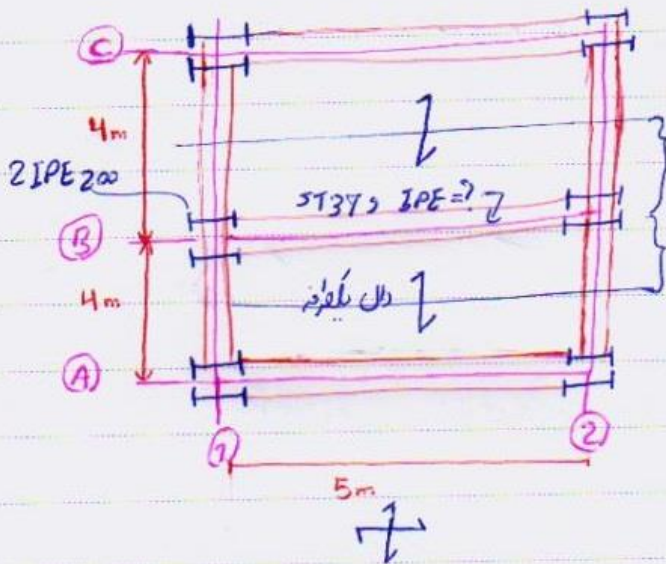 C
4m
2IPE200
ST37 و IPE=?
B
4m
دال یکطرفه
A
1
2
5m